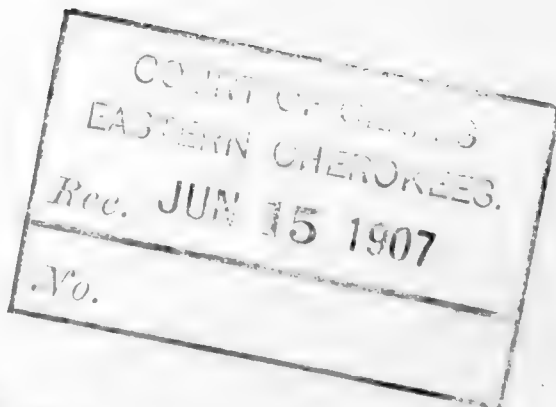 COURT OF CLAIMS
EASTERN CHEROKEES.
Rec. JUN 15 1907
No.